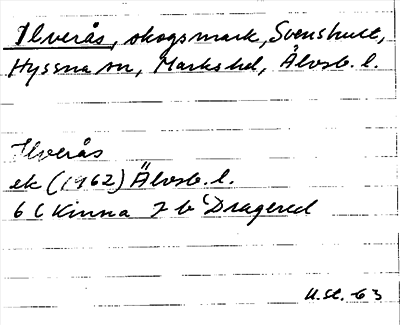 Ilverås, skogsmark, Svenshult,
Hyssna sn, Marks hd, Älvsb. l.
Ilverås
ek (1962) Älvsb. l.
6 C Kinna 7 b Dragered
U.St. -63